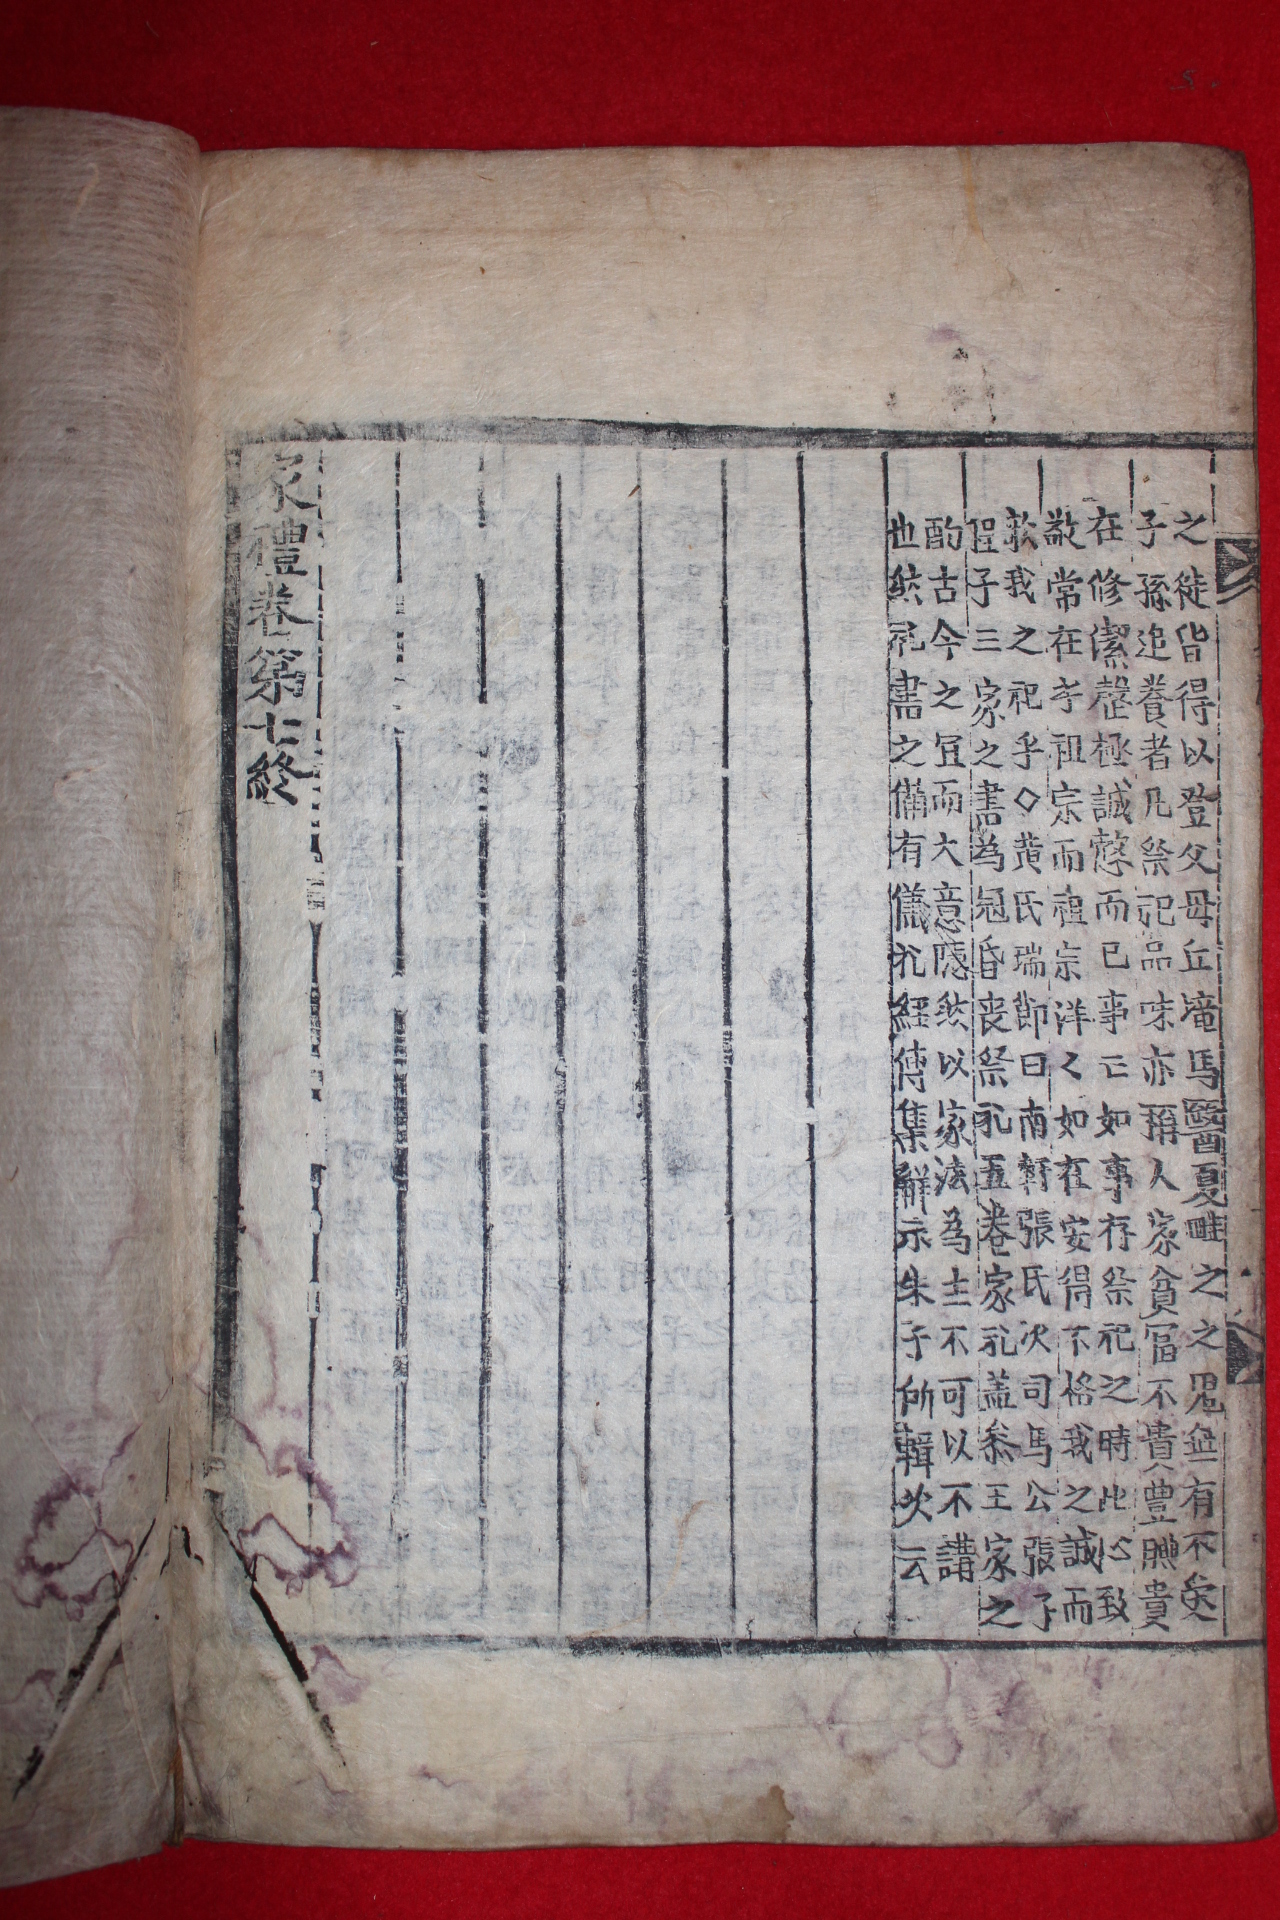 之徒皆得以登父母丘壠馬醫夏畦之之鬼無有不受
子孫追養者凡祭祀品味亦稱人家貧富不貴豊腆貴
在修潔罄極誠慤而已事亡如事存祭祀之時此心致
敬常在乎祖宗而祖宗洋々如在安得不格我之誠而
歆我之祀乎◇黃氏瑞節曰南軒張氏次司馬公張子
程子三家之書為冠昏喪祭礼五卷家礼盖叅王家之
酌古今之宜而大意隱然以家法為主不可以不講
也然礼書之備有儀礼經傳集解示朱子所輯次云
家禮卷第七終